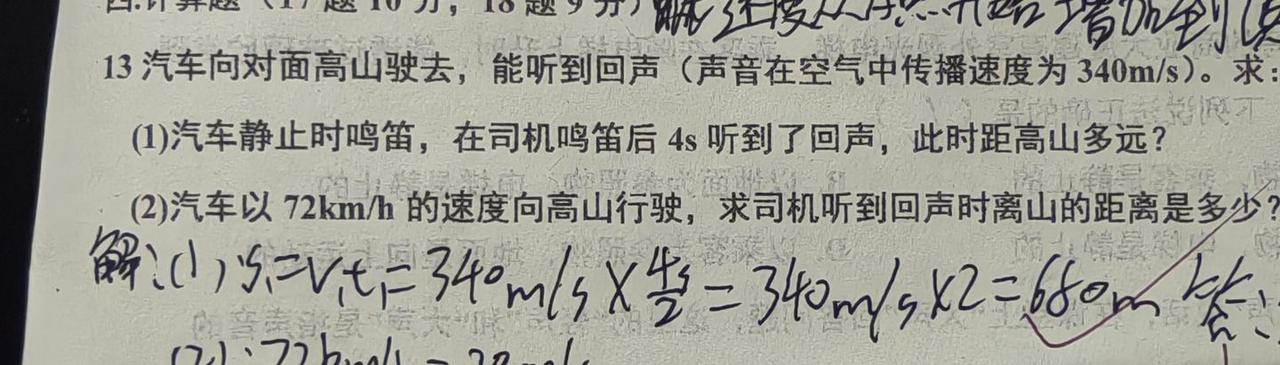 四.计算题（17题10分，18题9分）解：速度从0开始增加到
13 汽车向对面高山驶去，能听到回声（声音在空气中传播速度为 340m/s）。求：
(1)汽车静止时鸣笛，在司机鸣笛后 4s 听到了回声，此时距高山多远？
(2)汽车以 72km/h 的速度向高山行驶，求司机听到回声时离山的距离是多少？
解：(1) S₁=V₁t₁=340m/s×4s/2=340m/s×2=680m 答：
(2)：72km/h=20m/s